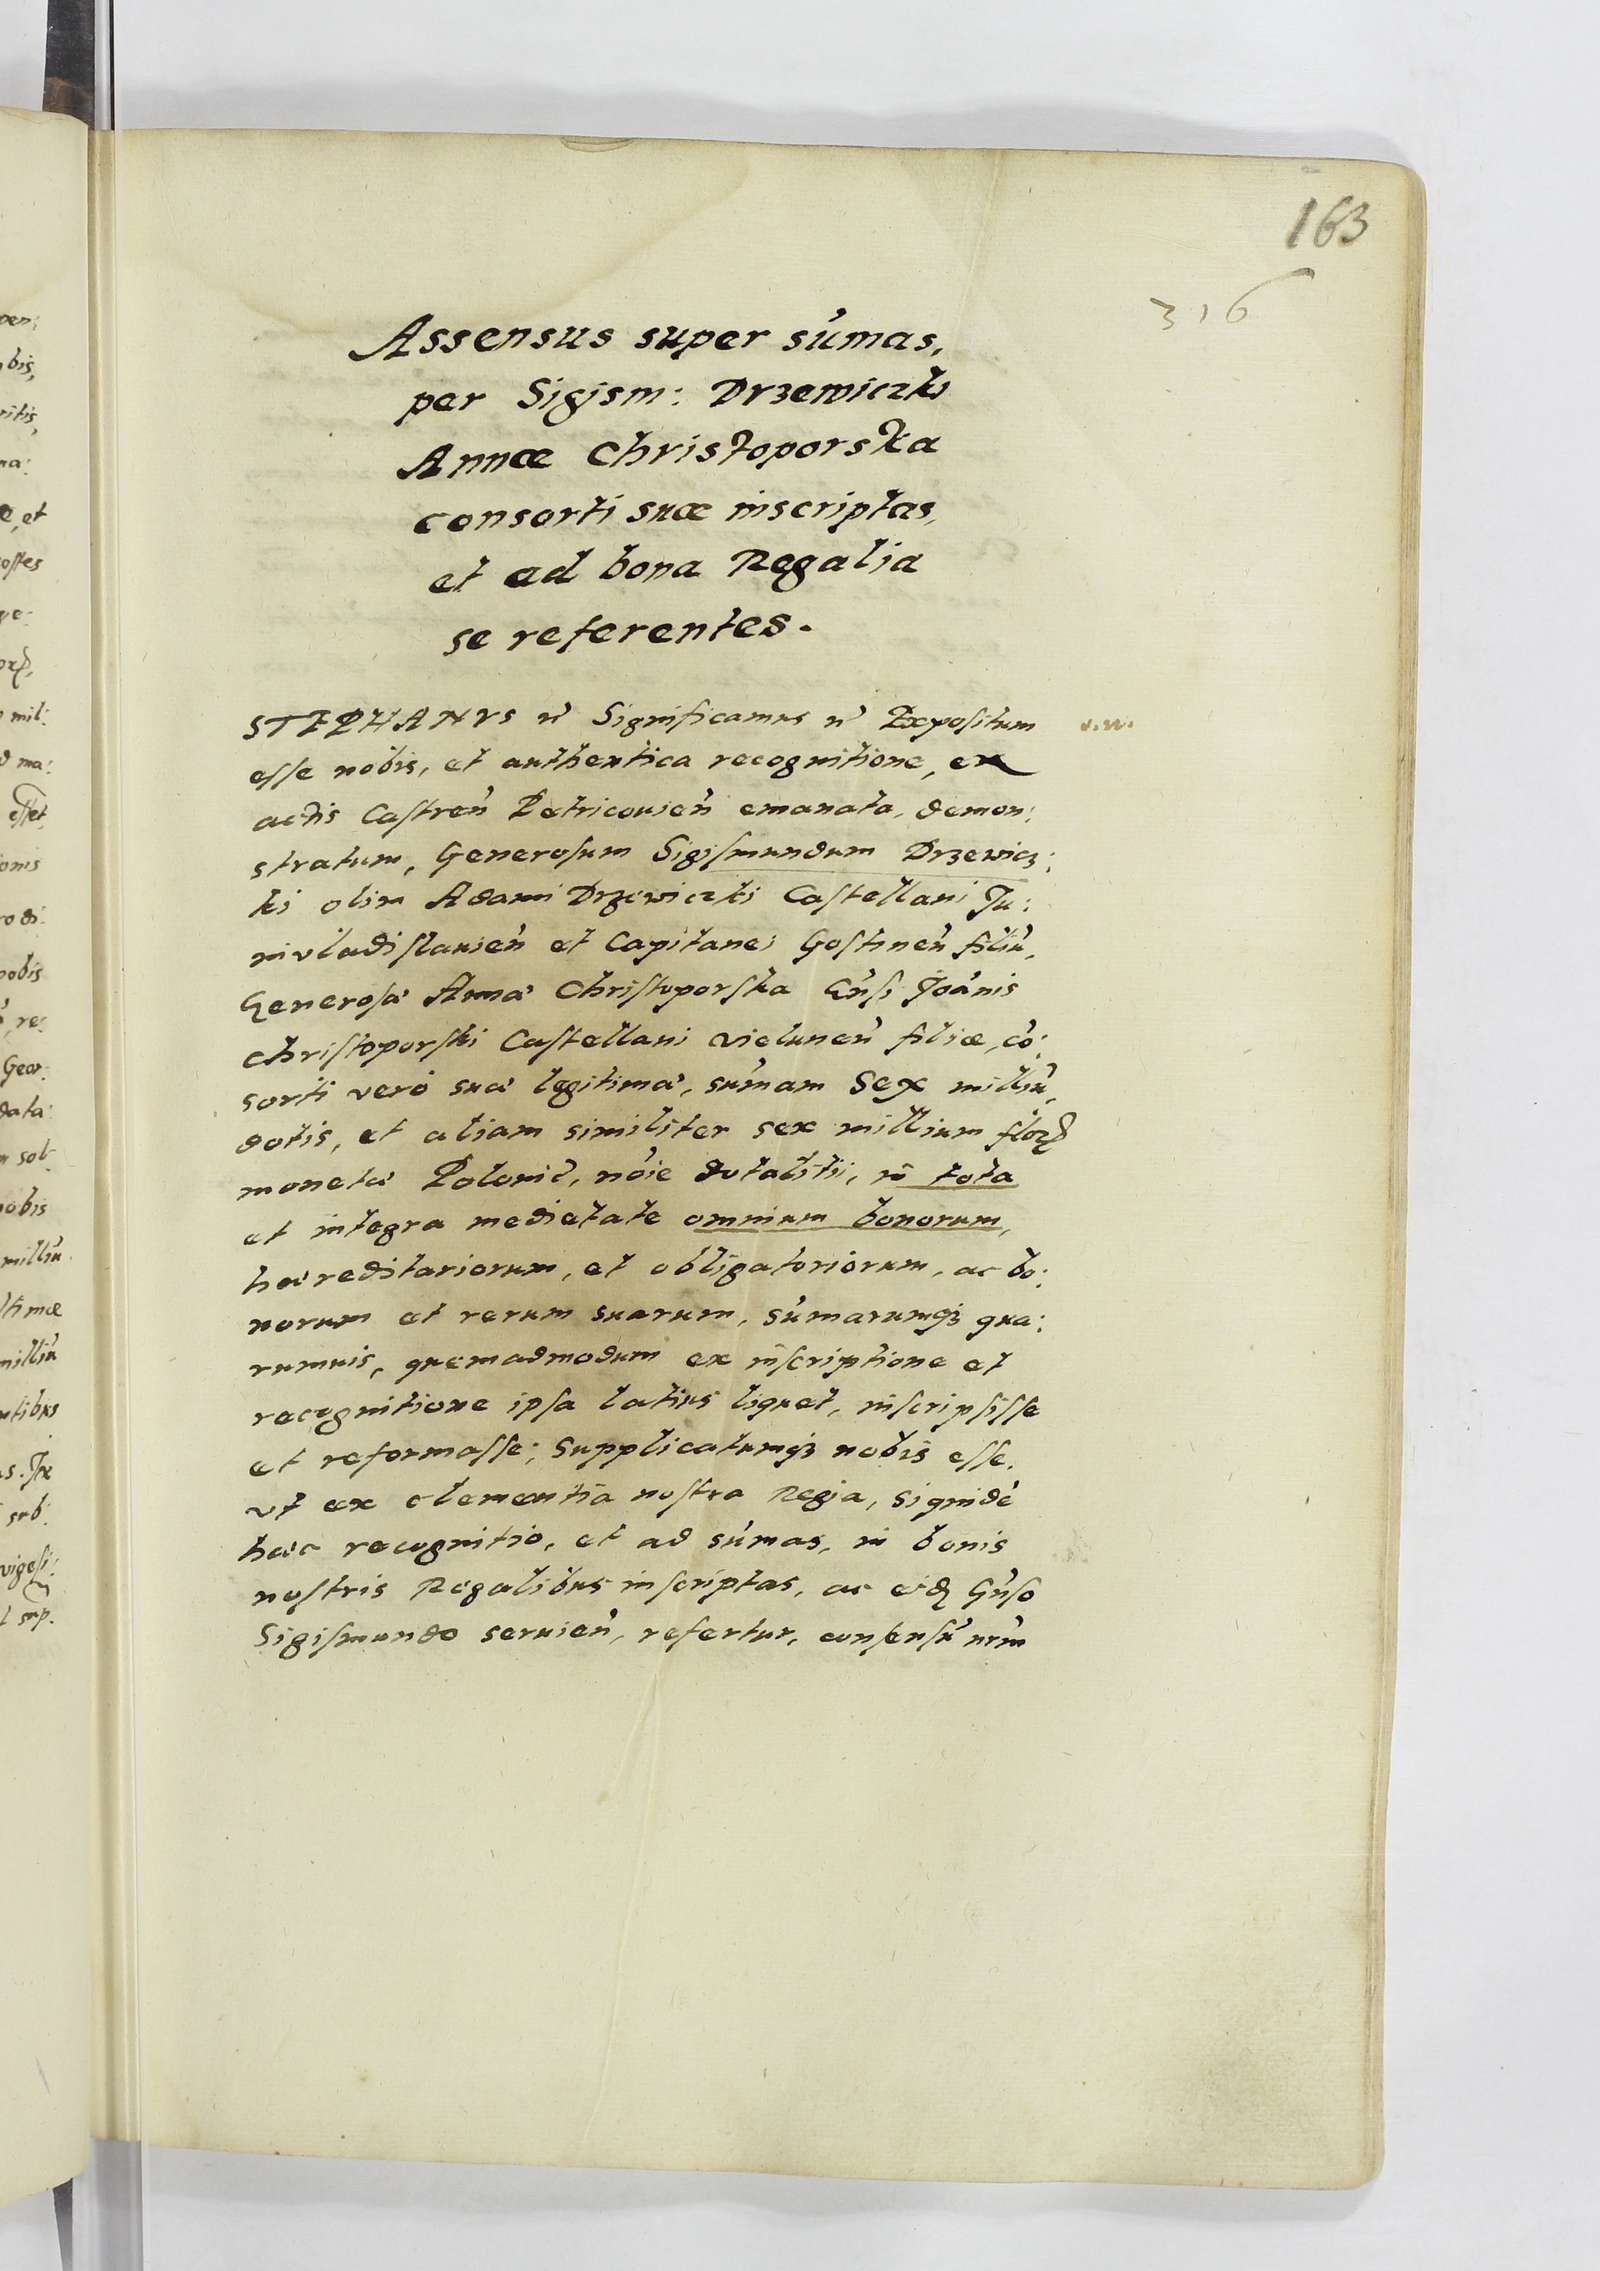 163
316
Assensus super sum̄as,
per Sigism: Drzewiczki
Annæ Christoporska
consorti suæ inscriptas,
et ad bona Regalia
se referentes.
STEPHANVS etc̄ Significamus etc̄ Expositum
esse nobis, et authentica recognitione, ex
actis Castren̄ Petricouien̄ emanata, demon:
stratum, Generosum Sigismundum Drzewicz:
ki olim Adami Drzewiczki Castellani Iu:
niuladislauien̄ et Capitanei Gostinen̄ filiū,
Generosæ Annæ Christoporska Gn̄si Joānis
Christoporski Castellani Vielunen̄ filiæ, cō:
sorti vero suæ legitimæ, sum̄am Sex milliū,
dotis, et aliam similiter sex millium floꝝ
monetæ Polonic̄, nōie dotalitii, in̄ tota
et integra medietate omnium bonorum,
hæreditariorum, et obligatoriorum, ac bo:
norum et rerum suarum, sum̄arumqꝫ qua:
rumuis, quemadmodum ex inscriptione et
recognitione ipsa latius liquet, inscripsisse
et reformasse; Supplicatumqꝫ nobis esse,
vt ex clementia nostra Regia, siquidē
hæc recognitio, et ad sum̄as, in bonis
nostris Regalibus inscriptas, ac eidꝫ Gn̄so
Sigismundo seruien̄, refertur, consensū nrm̄